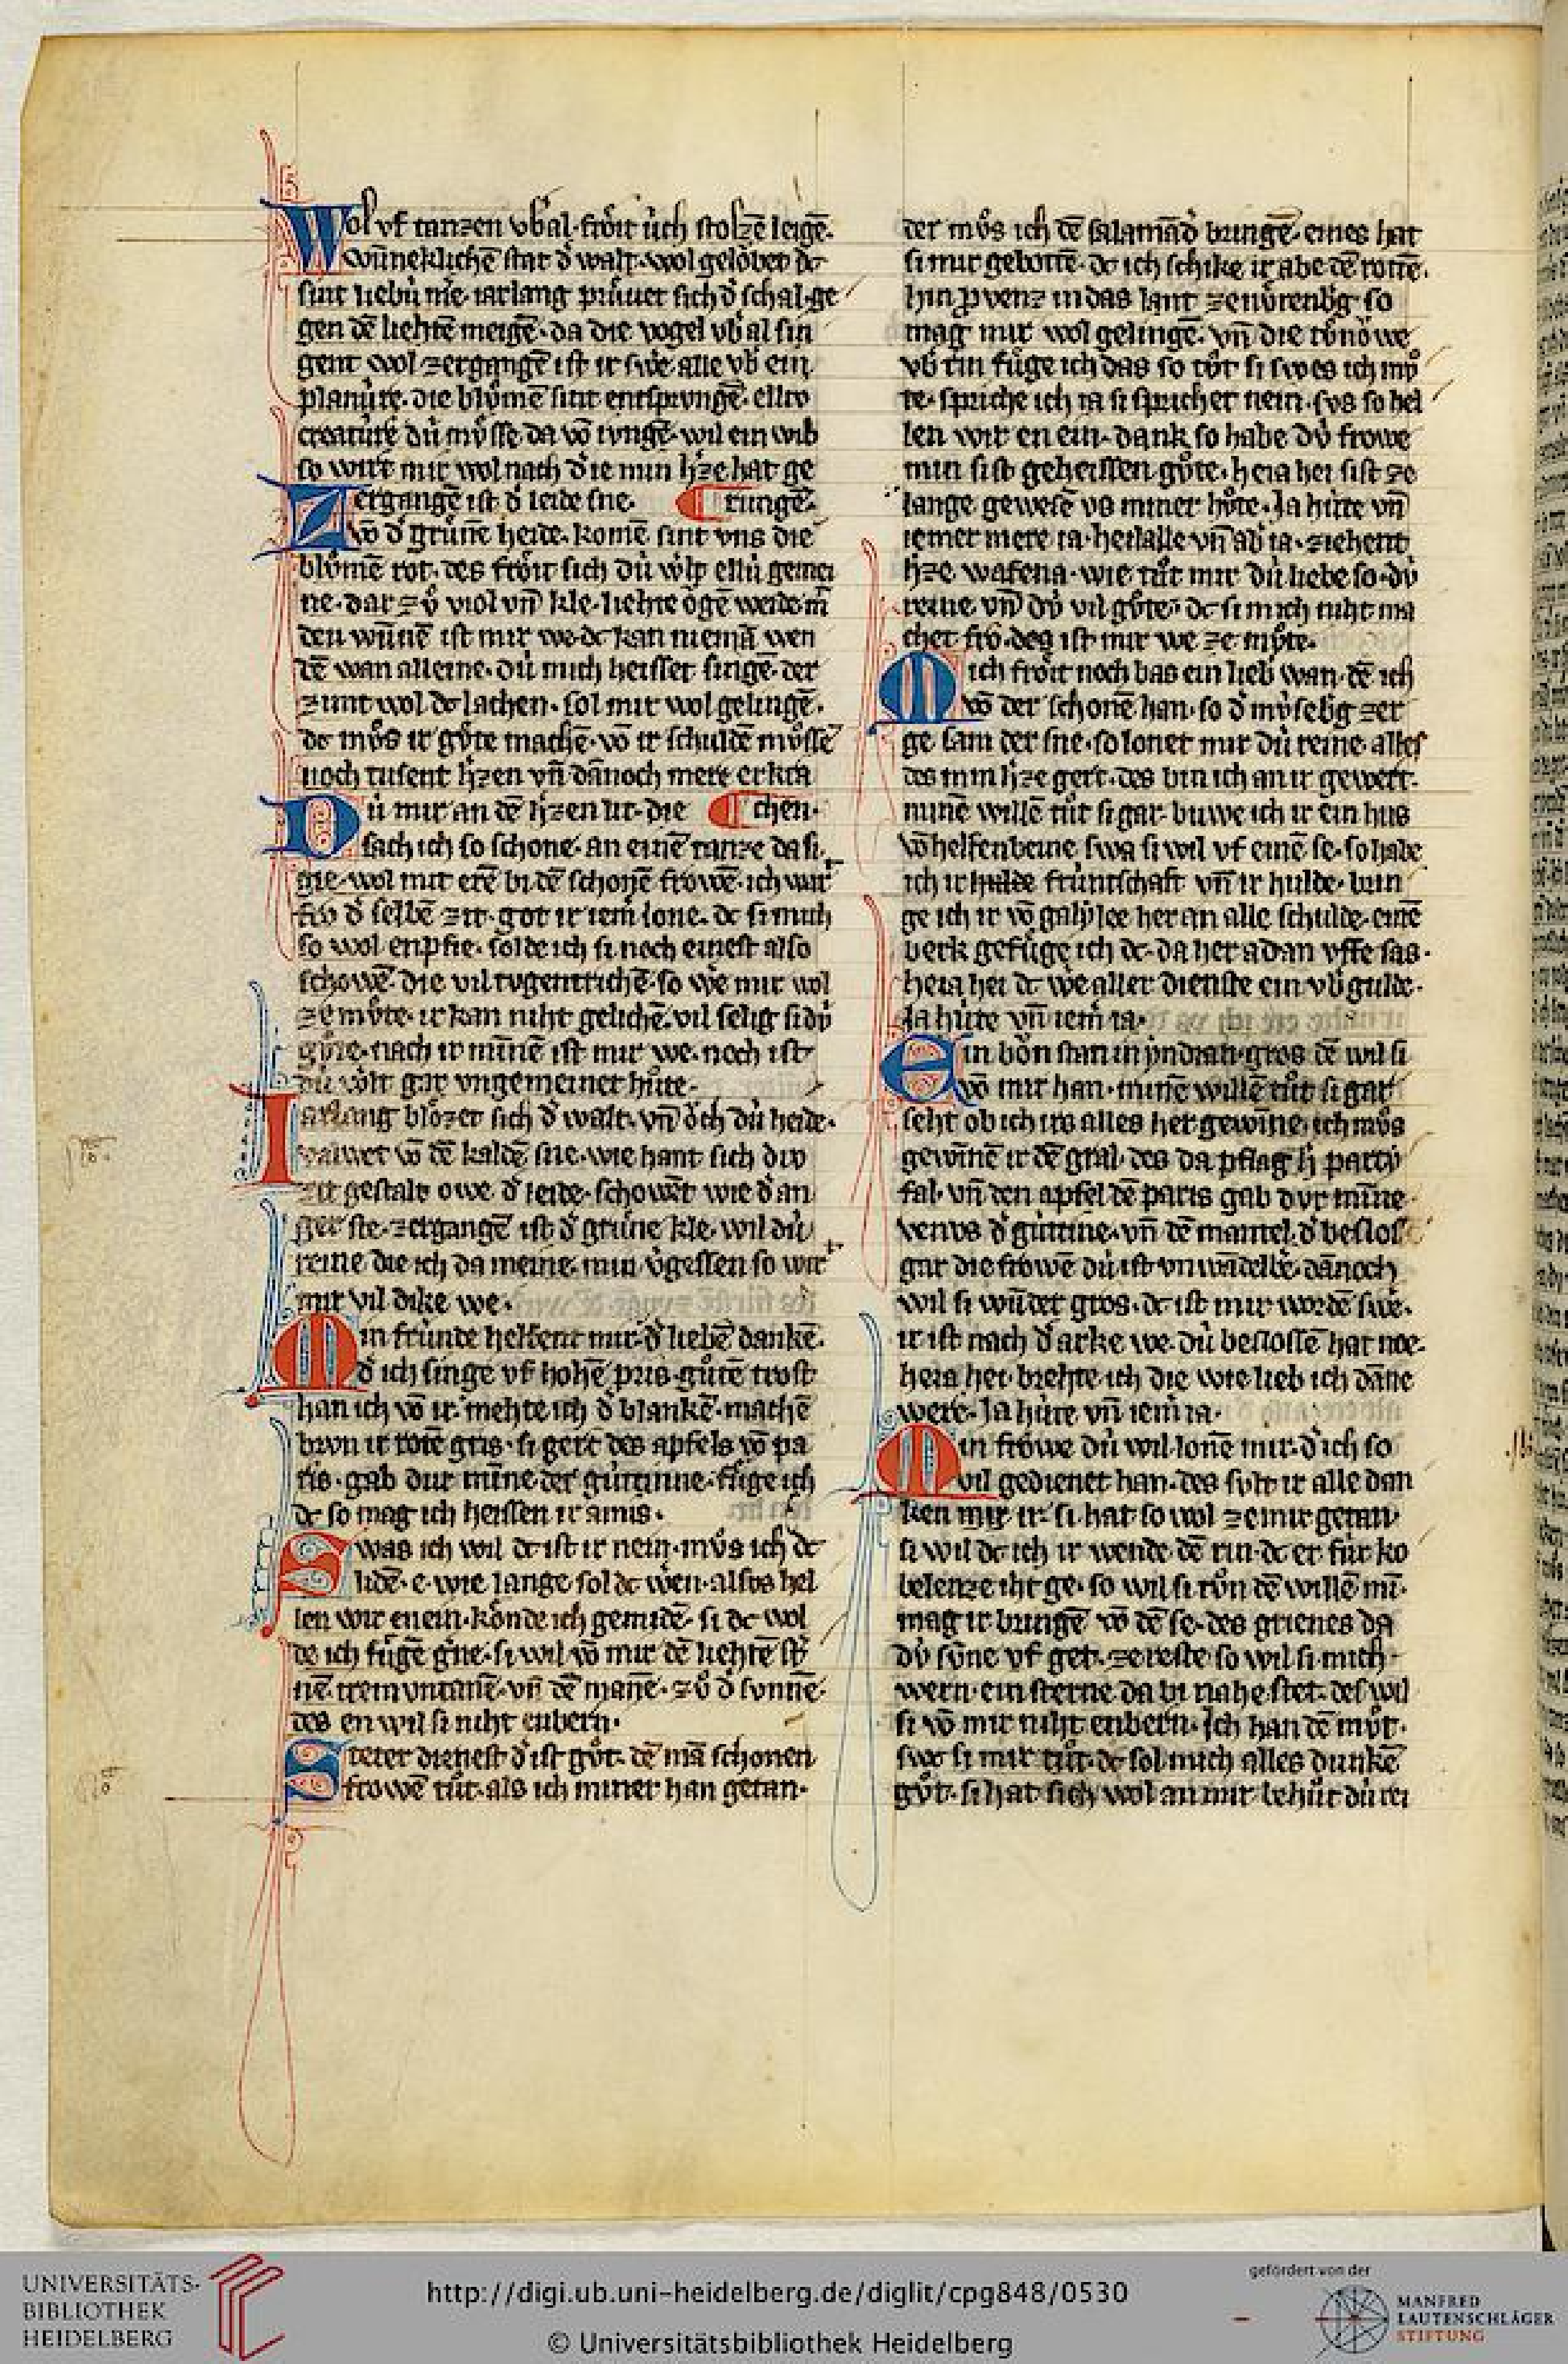 Wol vf tanzen vb̄al. froͤit úch stolzē leigē.
wūneklichē stat d̓ walt. wol geloͮbet dc
sint liebú me. iarlang pruͤuet sich d̓ schal. ge
gen dē liehtē meigē. da die vogel vb̓al sin
gent wol zergangē ist ir sw̓e. alle vb̓ ein
planúre. die bluͦmē sint entsprungē. ellv
creatúre dú muͤsse. da vō iungē. wil ein wib
so wirt mir wol nach d̓ ie min h̓ze hat ge
Zergangē ist d̓ leide sne. ¶ rungē.
vō d̓ gruͤnē heide. komē sint vns die
bluͦmē rot. des froͤit sich dú w̓lt ellú gemei
ne. dar zvͦ viol vn̄ kle. liehte oͮgē weide. m̄
den wūnē ist mir we. dc kan niemā wen
dē wan alleine. dú mich heisset singē. der
zimt wol dc lachen. sol mir wol gelingē.
dc mvͦs ir gvͤte machē. vō ir schuldē muͤssē
noch tusent h̓zen vn̄ dānoch mere erkra
Dú mir an dē h̓zen lit. die ¶ chen.
sach ich so schone. an einē tanze da si
gie. wol mit erē bi dē schonē froͮwē. ich wart
fro d̓ selbē zit. got ir iem̓ lone. dc si mich
so wol enpfie. solde ich si noch einest also
schowē. die vil tvgentrichē. so w̓e mir wol
ze mvͦte. ir kan niht gelichē. vil selig si dv́
gvͤte. nach ir minē ist mir we. noch ist
dú w̓lt gar vngemeinet hv́te.
Iarlang bloͤzet sich d̓ walt. vn̄ oͮch dú heide.
valwet vō dē kaldē sne. wie hant sich div
zit gestalt owe. d̓ leide. schowēt wie d̓ an
ger ste. zergangē ist d̓ gruͤne kle. wil dú
reine die ich da meine. min v̓gessen so wirt
mir vil dike we.
Min frúnde helfent mir. d̓ liebē dankē.
d̓ ich singe vf hohē pris. guͦtē trost
han ich vō ir. mehte ich d̓ blankē. machē
brvn ir rotē gris. si gert des apfels vō pa
ris. gab dur mīne. der gúttinne. fuͤge ich
dc so mag ich heissen ir amis.
Swas ich wil dc ist ir nein. mvͦs ich dc
lidē. e. wie lange sol dc wen. alsvs hel
len wir enein. kónde ich gemidē. si dc wol
de ich fuͤgē g̓ne. si wil vō mir dē liehtē st̓
nē. tremvntanē. vn̄ dē manē. zvͦ d̓ svnnē.
des en wil si niht enbern.
Steter dienest d̓ ist gvͦt. dē mā schonen
frowē tuͦt. als ich miner han getan.
der mvͦs ich dē salamād̓ bringē. eines hat
si mir gebottē. dc ich schike ir abe dē rottē.
hin p̱venz in das lant ze nv́renb̓g so
mag mir wol gelingē. vn̄ die tvͦnoͮwe
vb̓ rin fuͤge ich das so tuͦt si swes ich mvͦ
te. spriche ich ia si sprichet nein. svs so hel
len wir en ein. dank so habe dv́ froͮwe
min sist geheissen gvͤte. heia hei sist ze
lange gewesē vs miner hvͦte. Ja hv́te vn̄
iemer mere ia. heilalle vn̄ ab̓ ia. ziehent
h̓ze. wafena. wie tuͦt mir dú liebe so. dv́
reine vn̄ dv́ vil gvͤte. dc si mich niht ma
chet fro. des ist mir we ze mvͦte.
Mich froͤit noch bas ein lieb wan. dē ich
vō der schonē han. so d̓ mv́seb̓g zer
ge sam der sne. so lonet mir dú reine alles
des min h̓ze gert. des bin ich an ir gewert.
minē willē tuͦt si gar. buwe ich ir ein hus
vō helfenbeine swa si wil vf einē se. so habe
ich ir hulde frúntschaft vn̄ ir hulde. brin
ge ich ir vō galylee her an alle schulde. einē
berk gefuͤge ich dc. da her adan vffe sas.
heia hei dc w̓e aller dienste ein vb̓gulde.
Ja hv́te vn̄ iem̓ ia.
Ein bōn stan in yndian. gros dē wil si
vō mir han. minē willē tuͦt si gar
seht ob ich irs alles her gewīne. ich mvͦs
gewīnē ir dē gral. des da pflag h̓ parcy
fal. vn̄ den apfel dē paris gab dvr mīne.
venvs d̓ gúttine. vn̄ dē mantel. d̓ beslos
gar die frowē dú ist vnwādelb̓e. dānoch
wil si wūder gros. dc ist mir wordē sw̓e.
ir ist nach d̓ arke we. dú beslossē hat noe.
heia hei. brehte ich die wie lieb ich dāne
were. Ja hv́te vn̄ iem̓ ia.
Min froͮwe dú wil. lonē mir. d̓ ich so
vil gedienet han. des svlt ir alle dan
ken mir ir. si hat so wol ze mir getan.
si wil dc ich ir wende dē rin. dc er fúr ko
belenze iht ge. so wil si tvͦn dē willē mī.
mag ir bringē vō dē se. des grienes da
dv́ svne vf get. ze reste. so wil si mich
wern. ein sterne. da bi nahe stet. des wil
si vō mir niht enbern. Ich han dē mvͦt.
swc si mir tuͦt. dc sol mich alles dunkē
gvͦt. si hat sich wol an mir behuͦt dú rei
UNIVERSITÄTS-
BIBLIOTHEK
HEIDELBERG
http://digi.ub.uni-heidelberg.de/diglit/cpg848/0530
© Universitätsbibliothek Heidelberg
gefördert von der
MANFRED
LAUTENSCHLÄGER
STIFTUNG